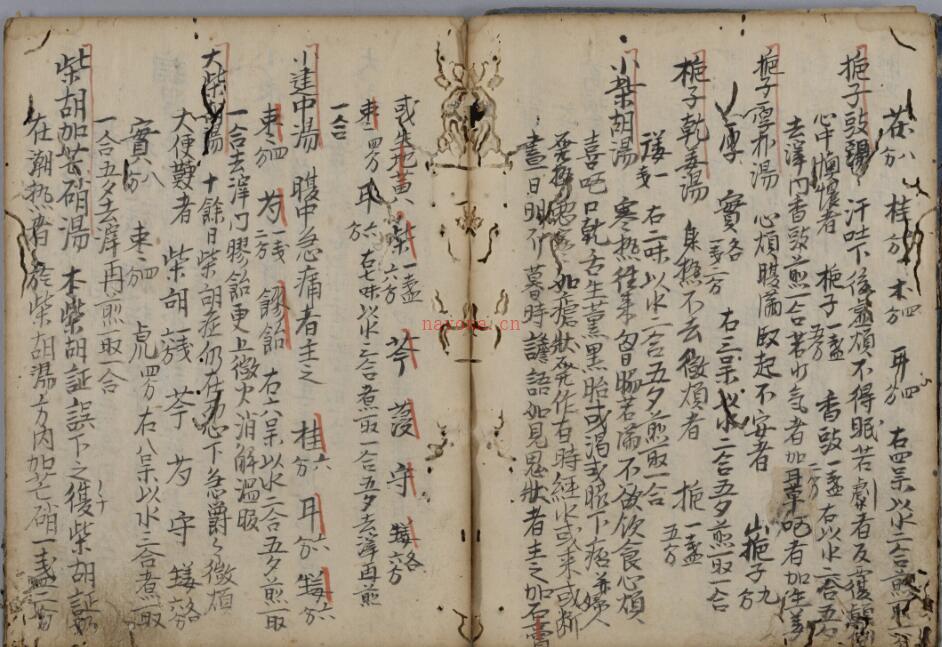 茯八分 桂六分 朮四分 耳四分 右四味以水二合煎取
梔子豉湯 汗吐下後虛煩不得眠若劇者反覆顛倒
心中懊憹者 梔子一戔五分 香豉一戔二分 右以水二合五夕
去滓内香豉煎一合若少氣者加耳草嘔者加生姜
梔子厚朴湯 心煩腹滿臥起不安者 山梔子九分
厚 實各 右三味以水二合五夕煎取一合
梔子乾姜湯 身熱不去微煩者 梔一戔五分
姜一戔 右二味以水一合五夕煎取一合
小柴胡湯 寒熱往來胸腸苦滿不欲飲食心煩
喜嘔口乾舌生薰黑胎或渴或眼下痞並婦人
發熱惡寒如瘧狀發作有時經水或來或断
晝日明了暮時譫語如見鬼狀者主之加石膏
或生地黄 柴一戔六分 芩 夏 守 姜各六分
枣一四分 耳六分 右七味以水二合煮取一合五夕去滓再煎
一合
小建中湯 腹中急痛者主之 桂六分 耳六分 姜六分
枣四分 芍一戔二分 膠飴 右六味以水二合五夕煎取
一合去滓内膠飴更上微火消解温服
大柴湯 十餘日柴胡症仍在心下急爵々微煩
大便難者 柴胡一戔 芩 芍 守 姜各六分
實八分 枣四分 虎四分 右八味以水三合煮取
一合五夕去滓再煎取一合
柴胡加芒硝湯 本柴胡証誤下之後柴胡証
在潮熱者 於柴胡湯方内加芒硝一戔二分
narone.cn